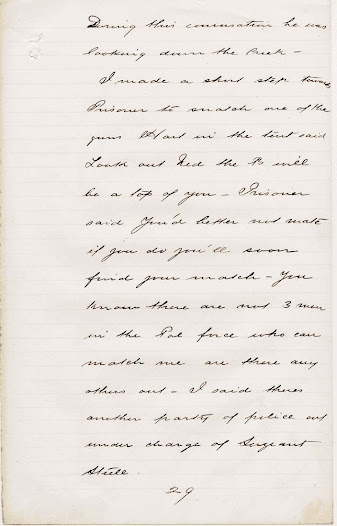 During this conversation he was
looking down the Creek –
I made a short step towards
Prisoner to snatch one of the
guns Hart in the tent said
Look out Ned the B will
be a top of you – Prisoner
said You'd better not mate
if you do you'll soon
find your match – You
know there are not 3 men
in the Pol force who can
match me are there any
others out – I said theres
another party of police out
under charge of Sergeant
Steele.
29